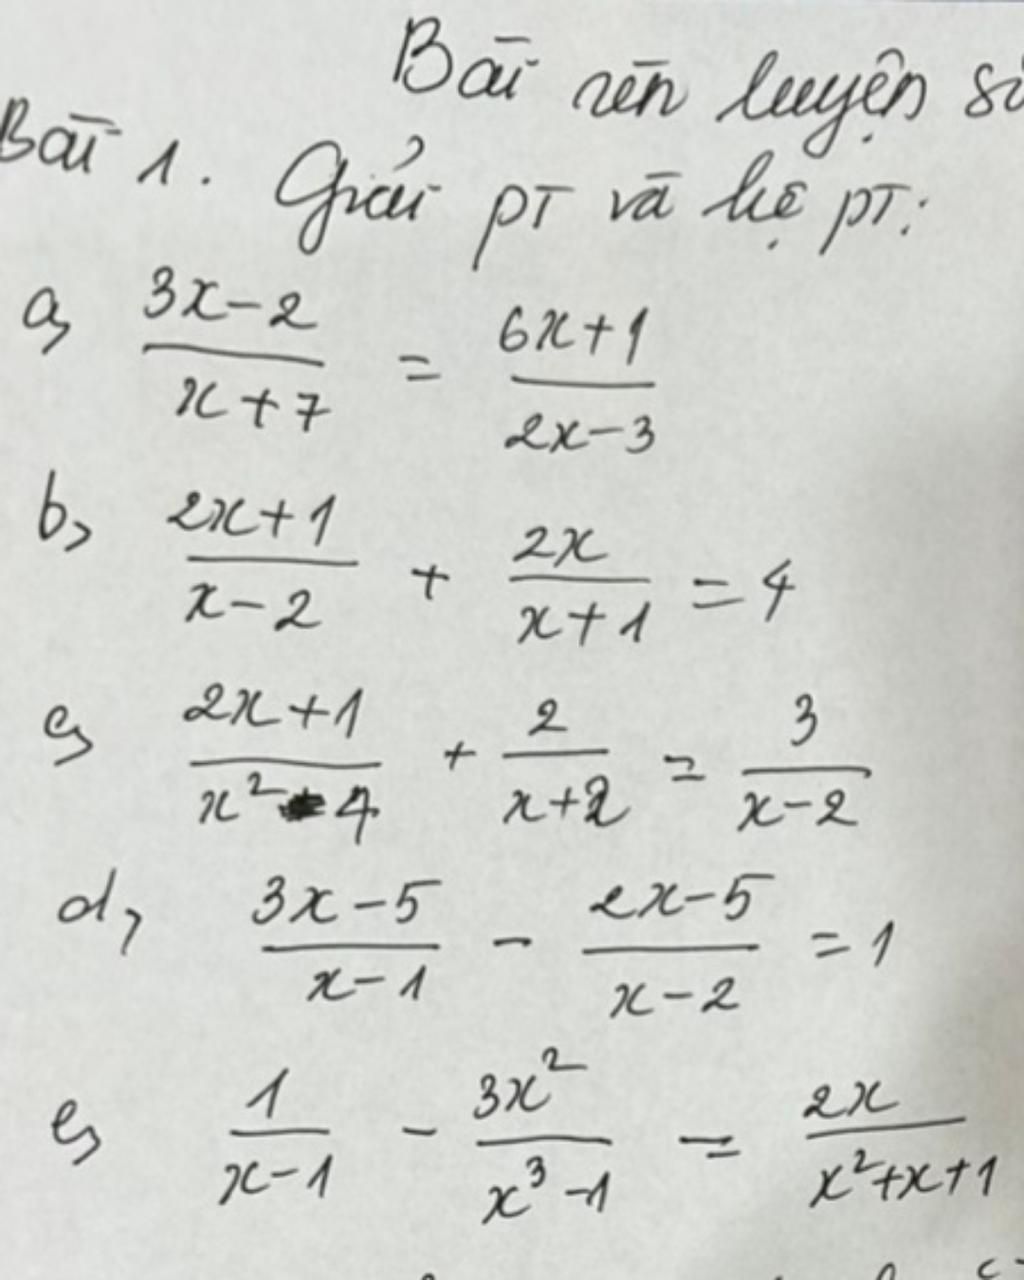 Bài rèn luyện số
Bài 1. Giải pT và hệ pT:
a, (3x-2)/(x+7) = (6x+1)/(2x-3)
b, (2x+1)/(x-2) + 2x/(x+1) = 4
c, (2x+1)/(x²-4) + 2/(x+2) = 3/(x-2)
d, (3x-5)/(x-1) - (2x-5)/(x-2) = 1
e, 1/(x-1) - 3x²/(x³-1) = 2x/(x²+x+1)